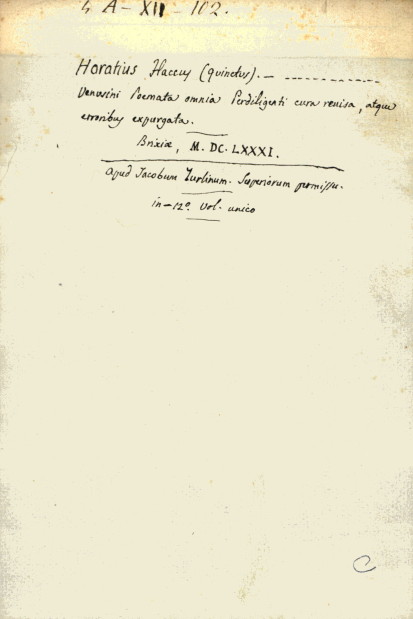 4 A - XII - 102.
Horatius Flaccus (quinctus). —
Venusini Poemata omnia Perdiligenti cura revisa, atque
erroribus expurgata.
Brixiæ, M. DC. LXXXI.
Apud Jacobum Turlinum. Superiorum permissu.
in-12º. Vol. unico
C